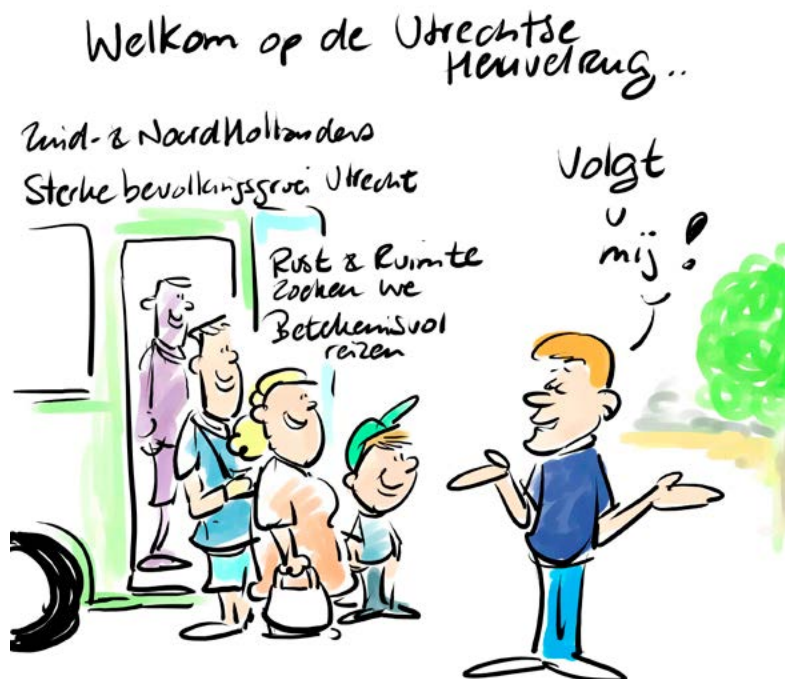 Welkom op de Utrechtse
Heuvelrug..
Zuid- & NoordHollanders
Sterke bevolkingsgroei Utrecht
Rust & Ruimte
zoeken we
Betekenisvol
reizen
Volgt
u
mij!